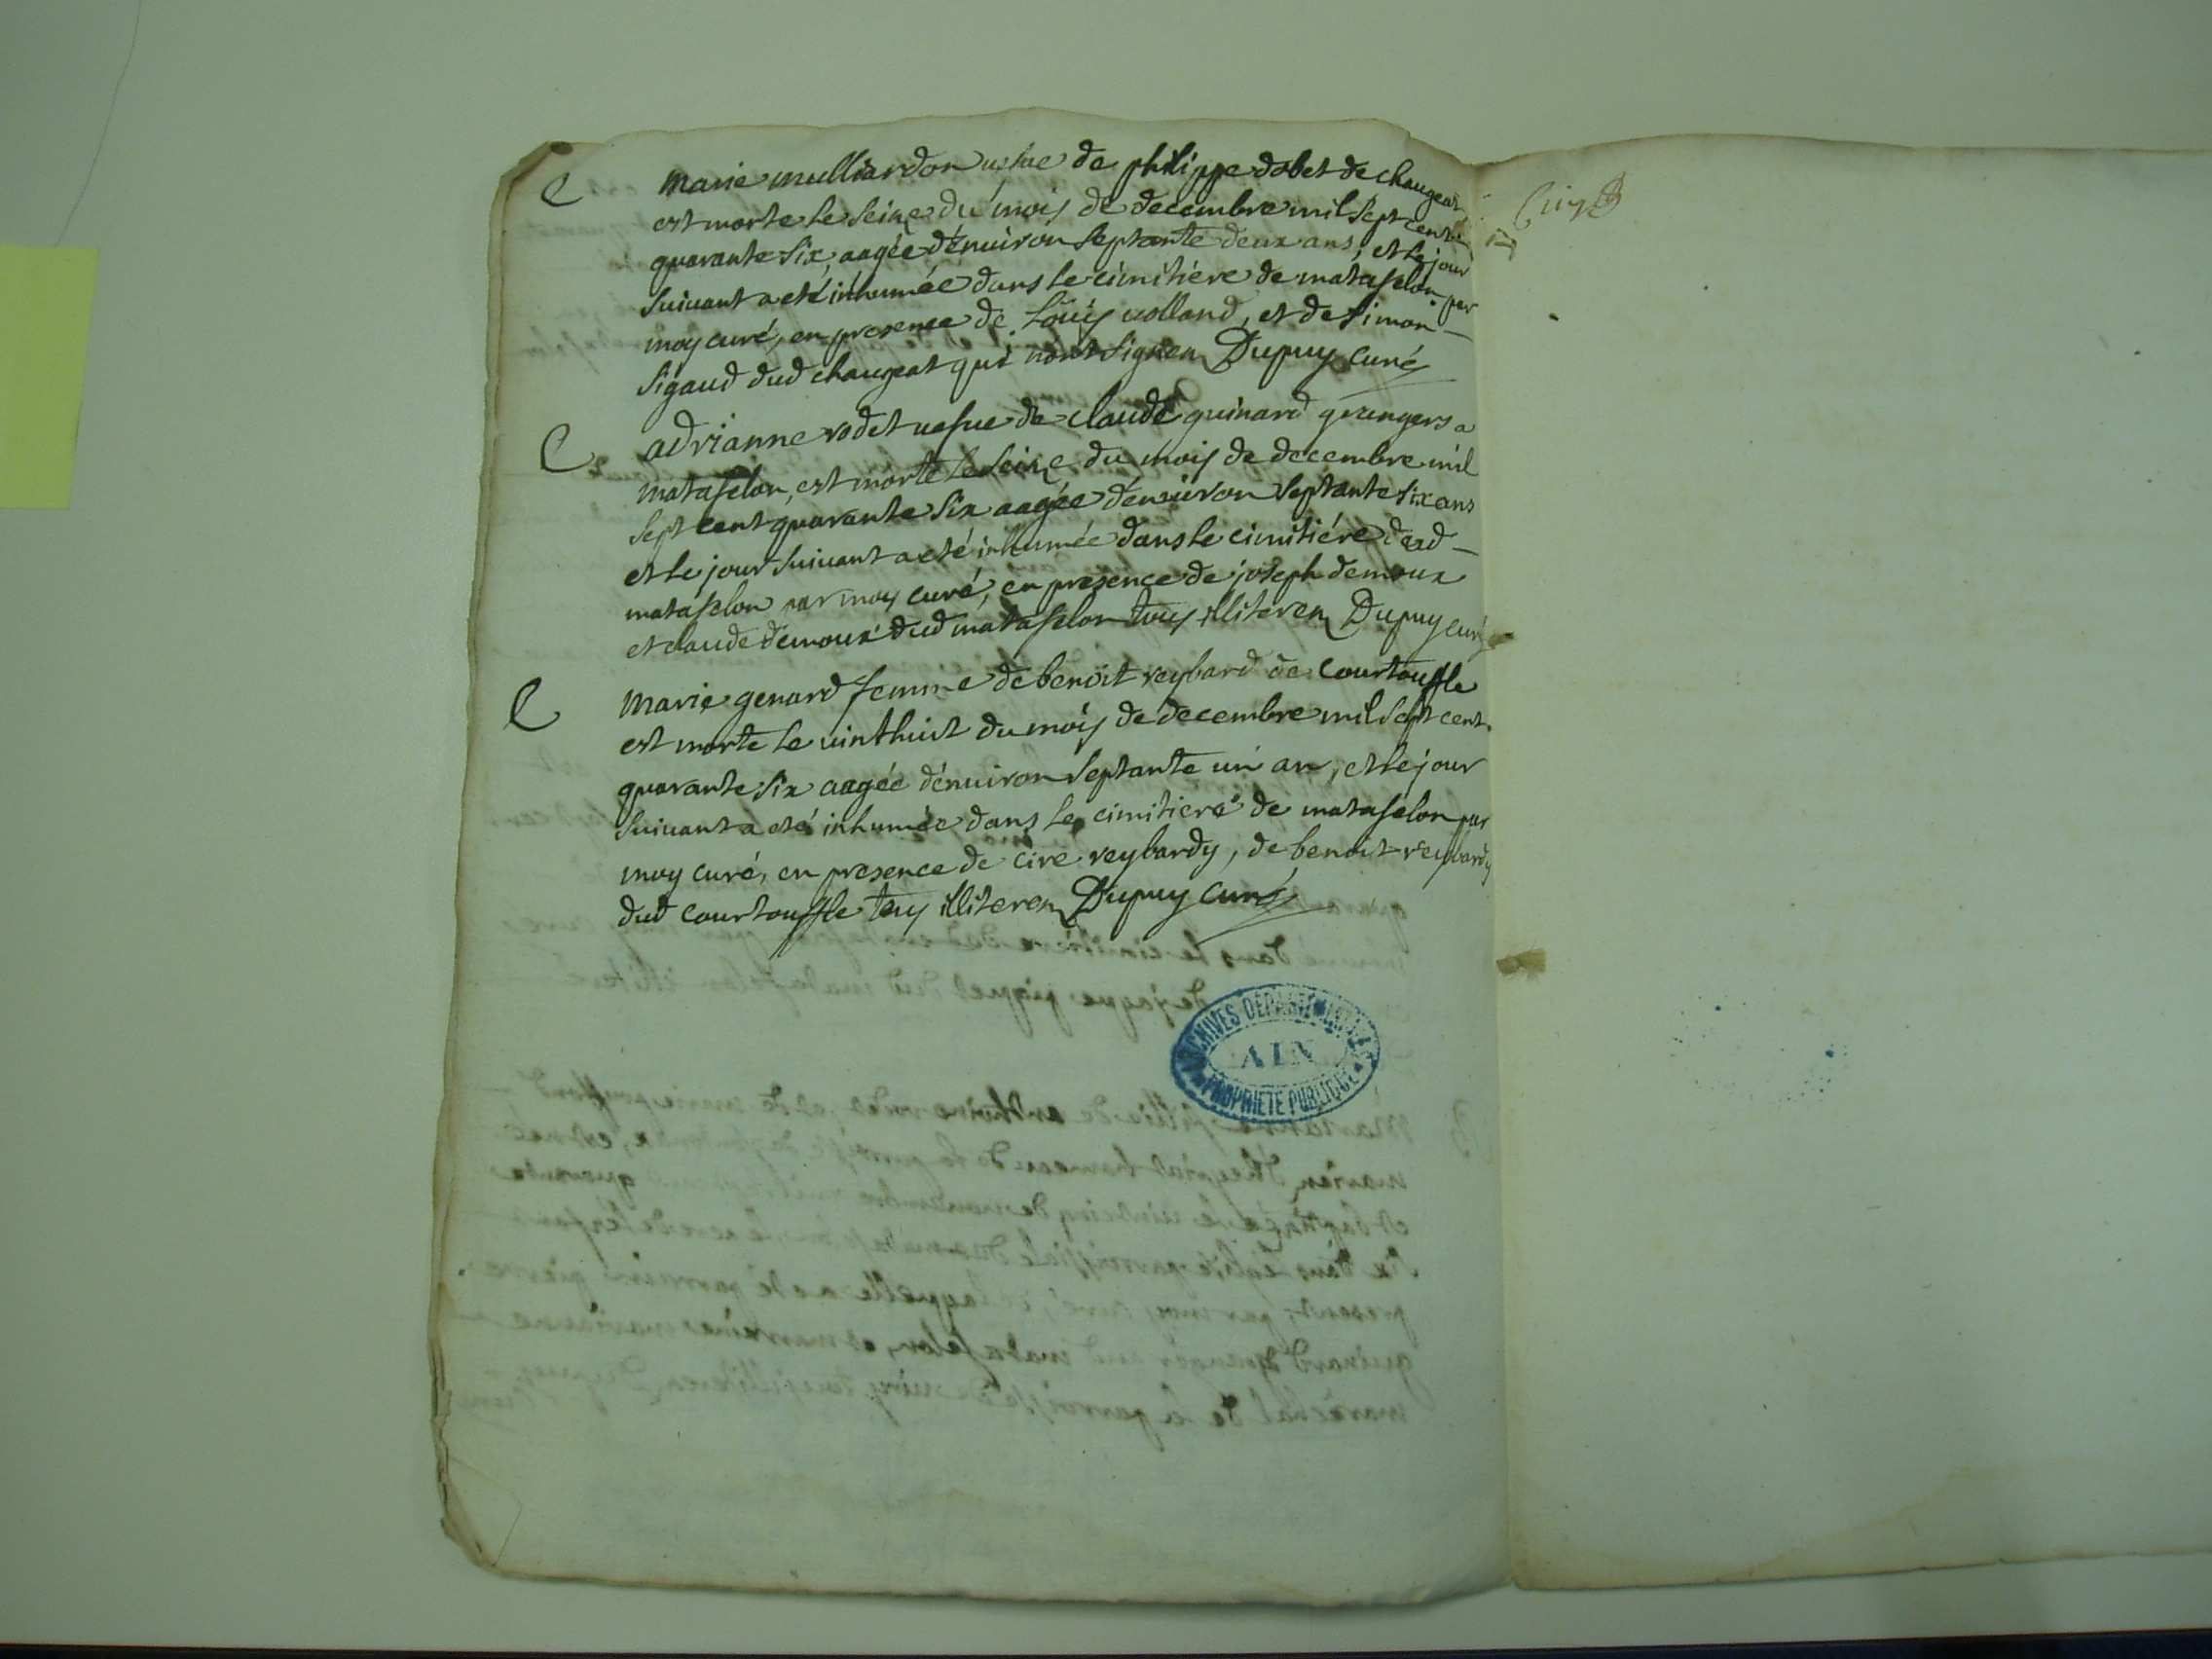 C
marie mulliardon vefve de philippe dobet de changeat
est morte le seize du mois de decembre mil sept cent
quarante six, aagée d'environ septante deux ans, et le jour
suivant a eté inhumée dans le cimitière de matafelon par
moy curé, en presence de Louis volland, et de simon
sigaud dud changeat qui nont signer Dupuy curé
C
adrianne rodet vefve de claude guinard grangers a
matafelon, est morte le seize du mois de decembre mil
sept cent quarante six aagée d'environ septante six ans
et le jour suivant a eté inhumée dans le cimitiére dud
matafelon par moy curé, en presence de joseph demoux
et claude demoux dud matafelon tous illiteren Dupuy curé
C
marie genard femme de benoit reybard de Courtouffle
est morte le vinthuit du mois de decembre mil sept cent
quarante six aagée d'environ septante un an, et le jour
suivant a eté inhumée dans le cimitiere de matafelon par
moy curé, en presence de cire reybardy, de benoit reybardy
dud courtouffle tous illiteren Dupuy curé
ARCHIVES DÉPARTEMENTALES
AIN
PROPRIÉTÉ PUBLIQUE